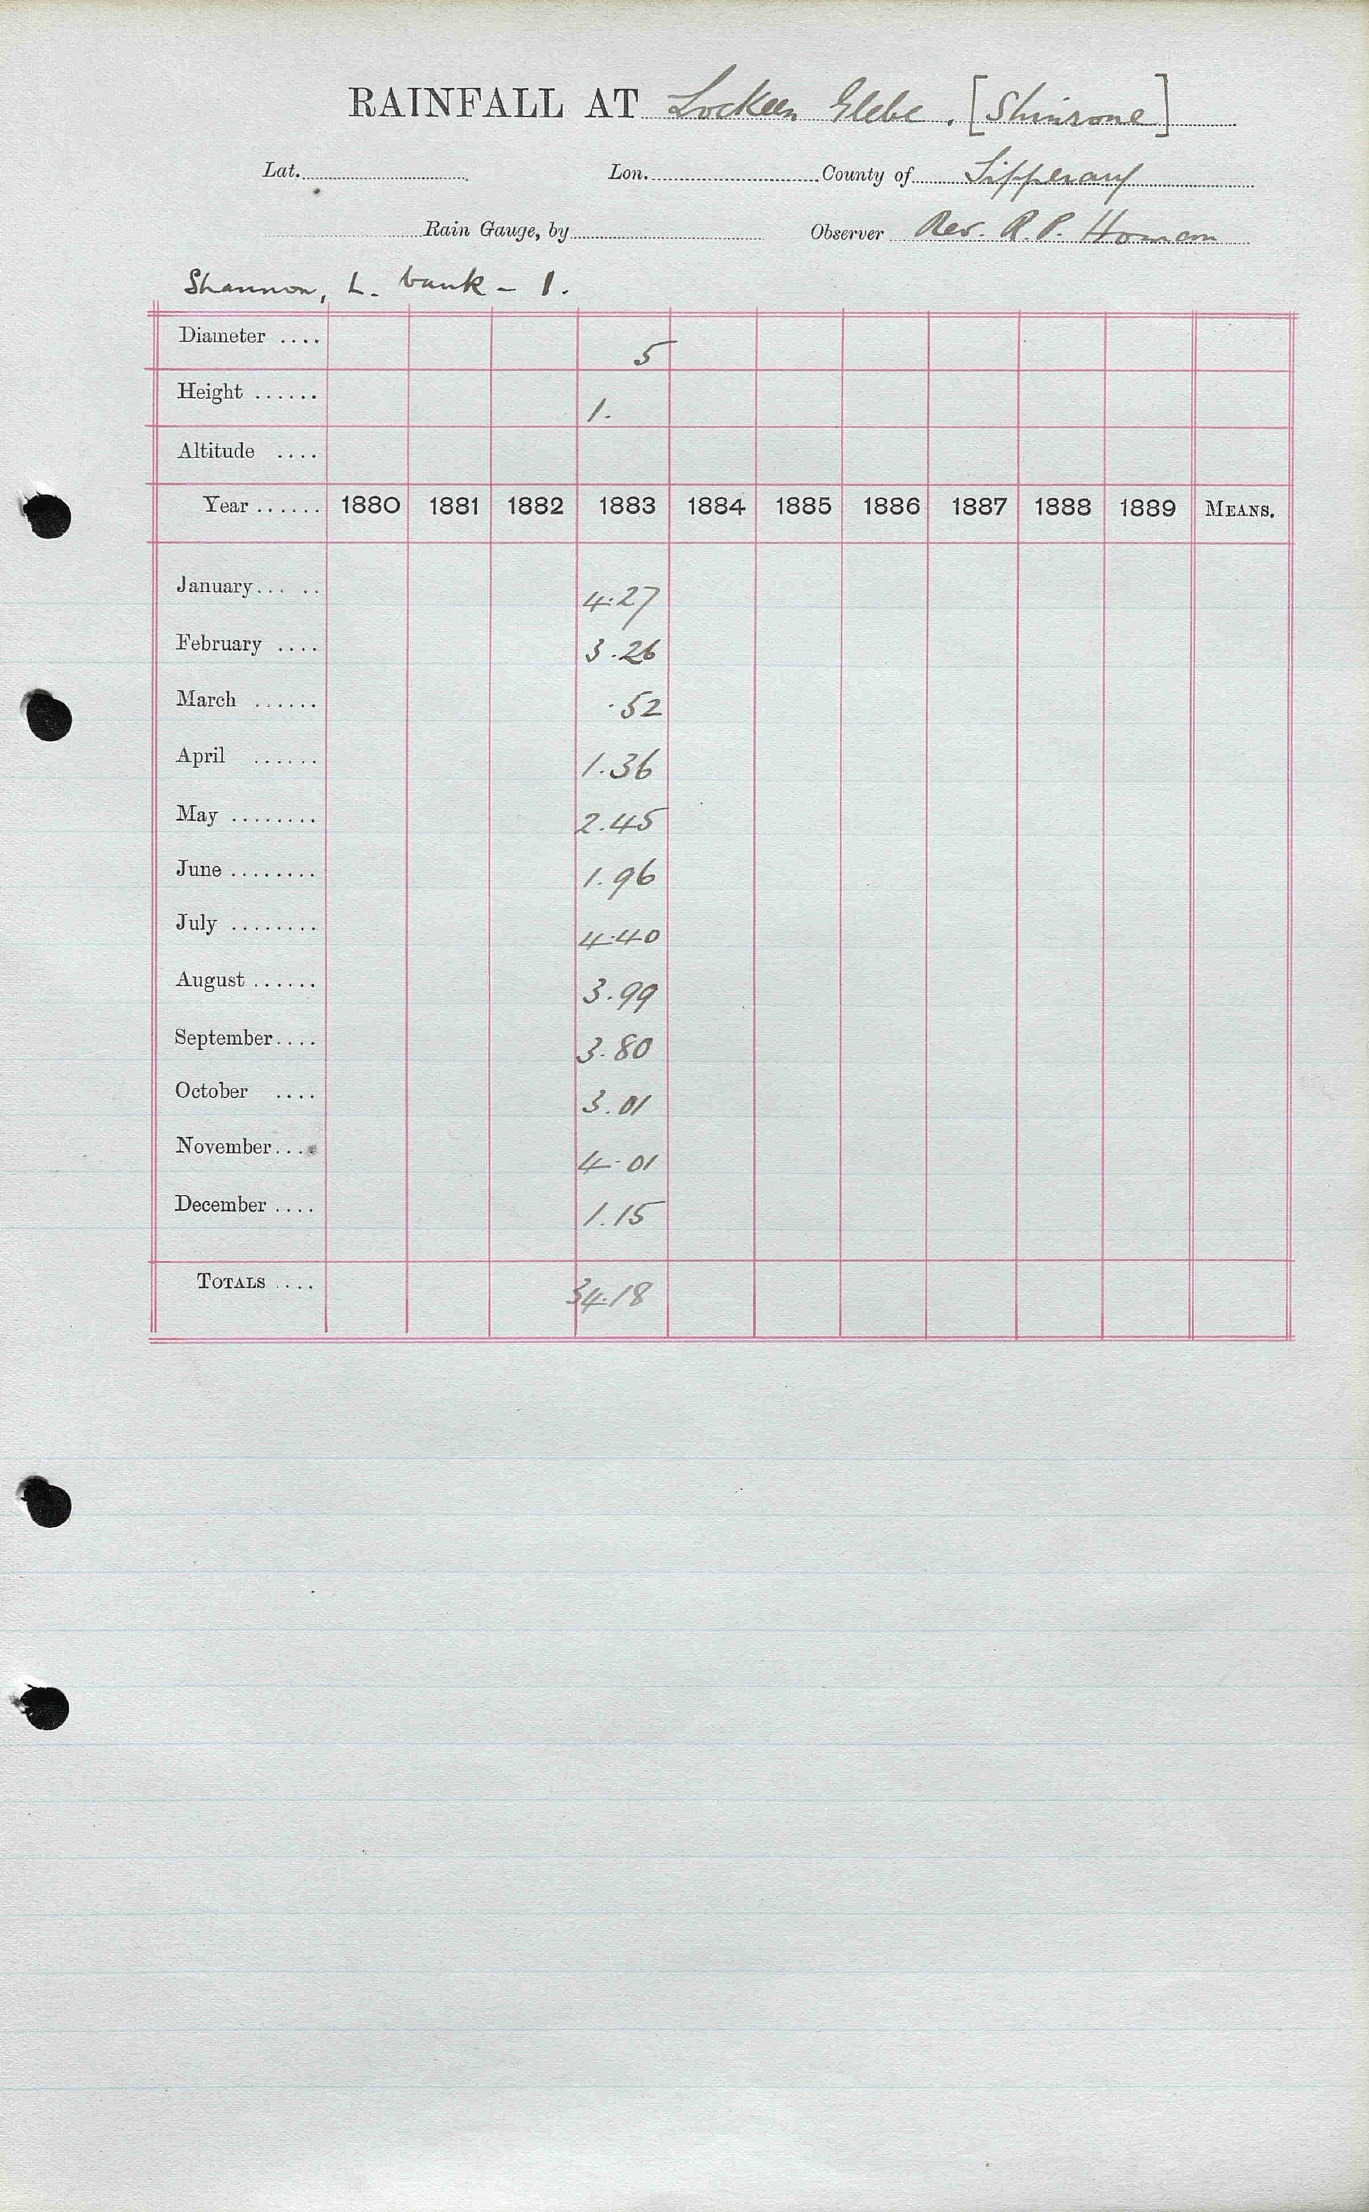 RAINFALL AT Lockeen Glebe. [Shinrone]
Lat. Lon. County of Tipperary
Rain Gauge, by Observer Rev. R. P. Homan
Shannon, L. bank - 1.
Diameter .... 5
Height ...... 1.
Altitude ....
Year ...... 1880 1881 1882 1883 1884 1885 1886 1887 1888 1889 MEANS.
January ... .. 4.27
February .... 3.26
March ...... .52
April ...... 1.36
May ........ 2.45
June ........ 1.96
July ........ 4.40
August ...... 3.99
September .... 3.80
October .... 3.01
November .... 4.01
December .... 1.15
TOTALS .... 34.18